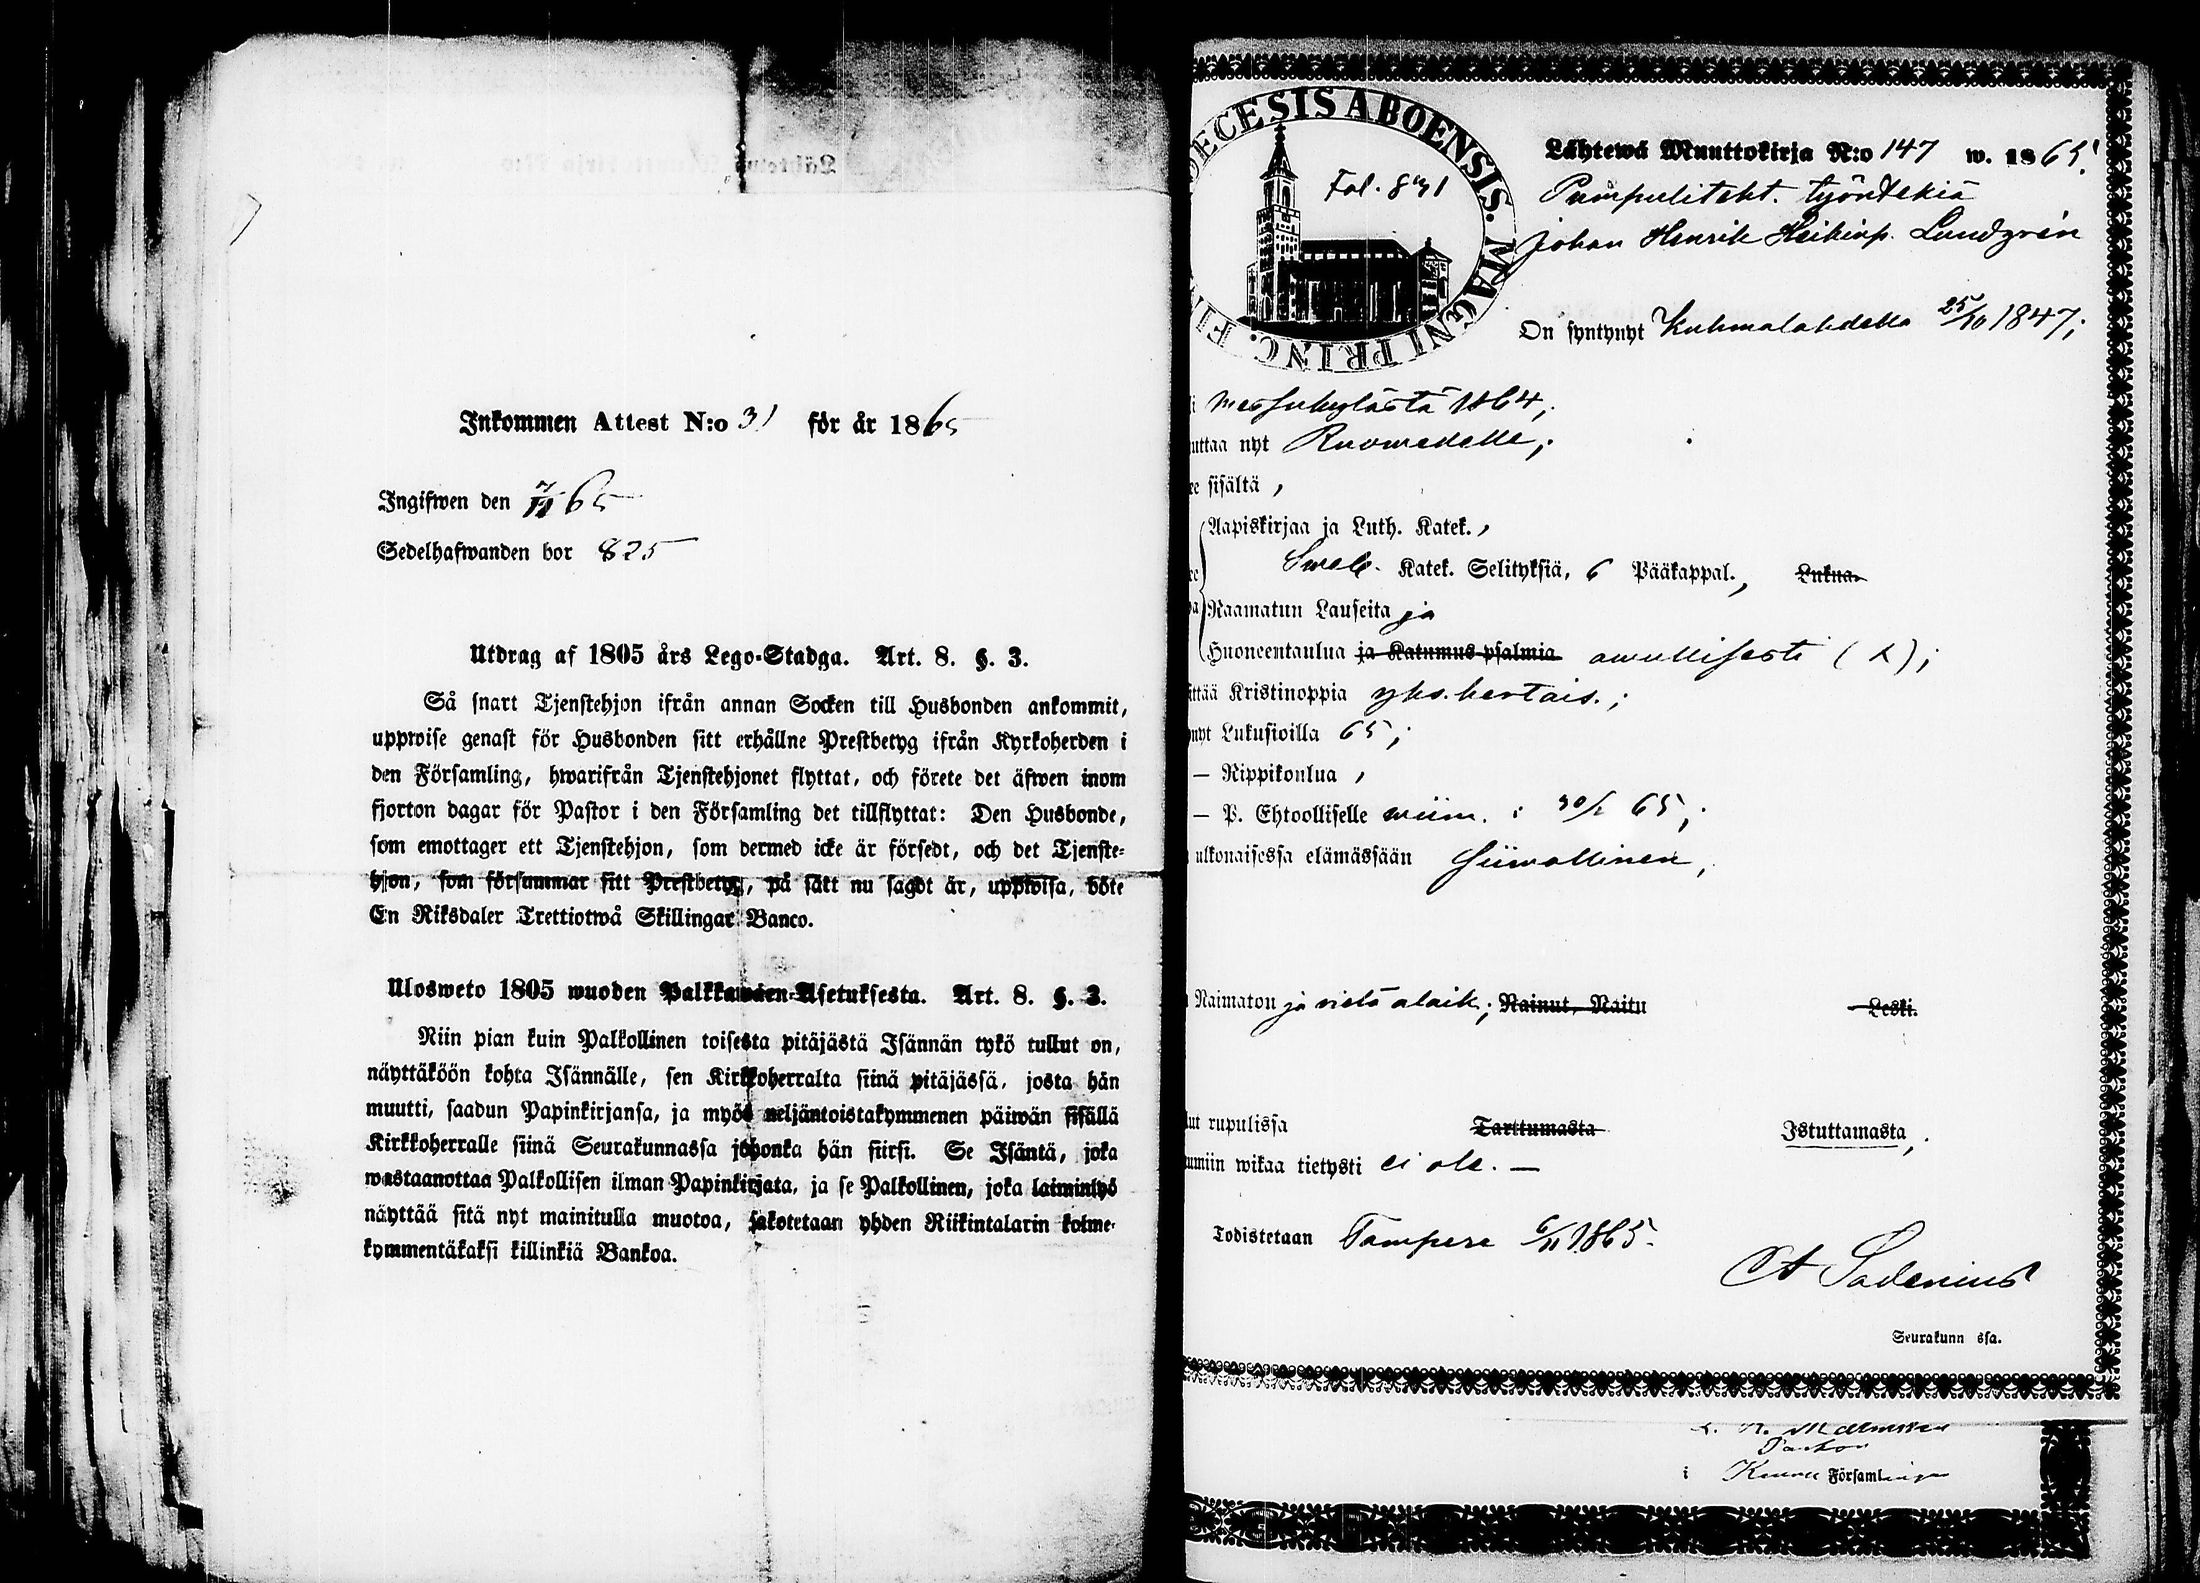 Inkommen Attest N:o 31 för år 1865
Ingifwen den 7/11 65
Sedelhafwanden bor 825
Utdrag af 1805 års Lego-Stadga. Art. 8. §. 3.
Så snart Tjenstehjon ifrån annan Socken till Husbonden ankommit,
uppwise genast för Husbonden sitt erhållne Prestbetyg ifrån Kyrkoherden i
den Församling, hwarifrån Tjenstehjonet flyttat, och förete det äfwen inom
fjorton dagar för Pastor i den Församling det tillflyttat: Den Husbonde,
som emottager ett Tjenstehjon, som dermed icke är försedt, och det Tjenste-
hjon, som försummar sitt Prestbetyg, på sätt nu sagdt är, uppwisa, böte
En Riksdaler Trettiotwå Skillingar Banco.
Ulosweto 1805 wuoden Palkkawäen-Asetuksesta. Art. 8. §. 3.
Niin pian kuin Palkollinen toisesta pitäjästä Isännän tykö tullut on,
näyttäköön kohta Isännälle, sen Kirkkoherralta siinä pitäjässä, josta hän
muutti, saadun Papinkirjansa, ja myös neljäntoistakymmenen päiwän sisällä
Kirkkoherralle siinä Seurakunnassa johonka hän siirsi. Se Isäntä, joka
wastaanottaa Palkollisen ilman Papinkirjata, ja se Palkollinen, joka laiminlyö
näyttää sitä nyt mainitulla muotoa, sakotetaan yhden Riikintalarin kolme-
kymmentäkaksi killinkiä Bankoa.
DECESIS ABOENSIS. MAGNI PRINC. F
Fol. 831
Lähtewä Muuttokirja N:o 147 w. 1865.
Pumpuliteht. työntekiä
Johan Henrik Heikinp. Lundgrén
On syntynyt Kuhmalahdella 25/10 1847;
Messukylästä 1864;
uttaa nyt Ruowedelle;
sisältä,
Aapiskirjaa ja Luth. Katek.,
Sweb. Katek. Selityksiä, 6 Pääkappal., Lukua.
Raamatun Lauseita ja
Huoneentaulua ja Katumus-psalmia awullisesti ( );
ittää Kristinoppia yks.kertais.;
nyt Lukusioilla 65;
— Rippikoulua,
— P. Ehtoolliselle wiim. : 65;
ulkonaisessa elämässään siiwollinen,
Naimaton ja vielä alaik; Nainut, Naitu Leski.
lut rupulissa Tarttumasta Istuttamasta,
umiin wikaa tietysti ei ole. —
Todistetaan Tampere 6/11 1865.
Sadenius
Seurakunn ssa.
Pastor
i Församlingen